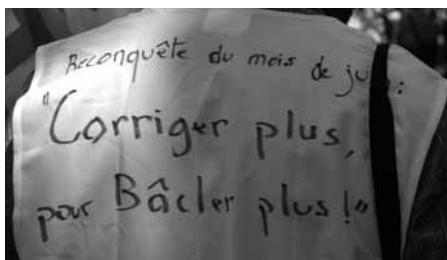 Reconquête du mois de
"Corriger plus,
pour Bâcler plus !"